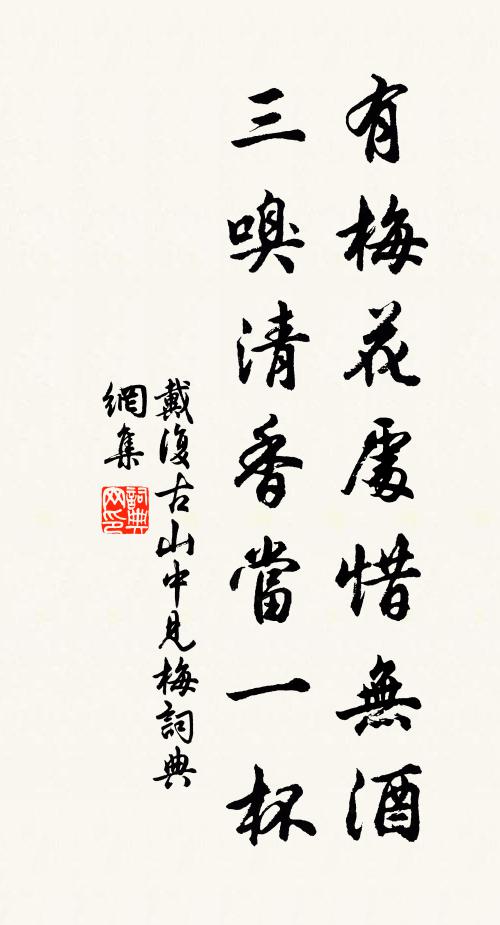 有梅花處惜無酒
三嗅清香當一杯
戴復古山中見梅詞典
網集
詞典網印